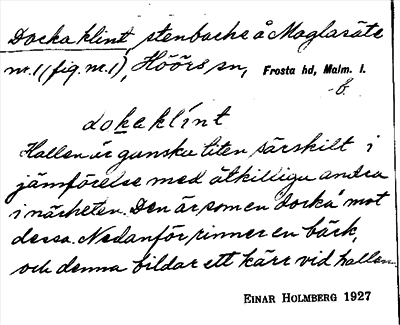 Docka klint, stenbacke å Maglasäte
nr. 1 (fig. nr. 1), Höörs sn, Frosta hd, Malm. l.
dokaklínt
Hallen är ganska liten, särskilt i
jämförelse med åtskilliga andra
i närheten. Den är som en "docka" mot
dessa. Nedanför rinner en bäck,
och denna bildar ett kärr vid hallen.
EINAR HOLMBERG 1927